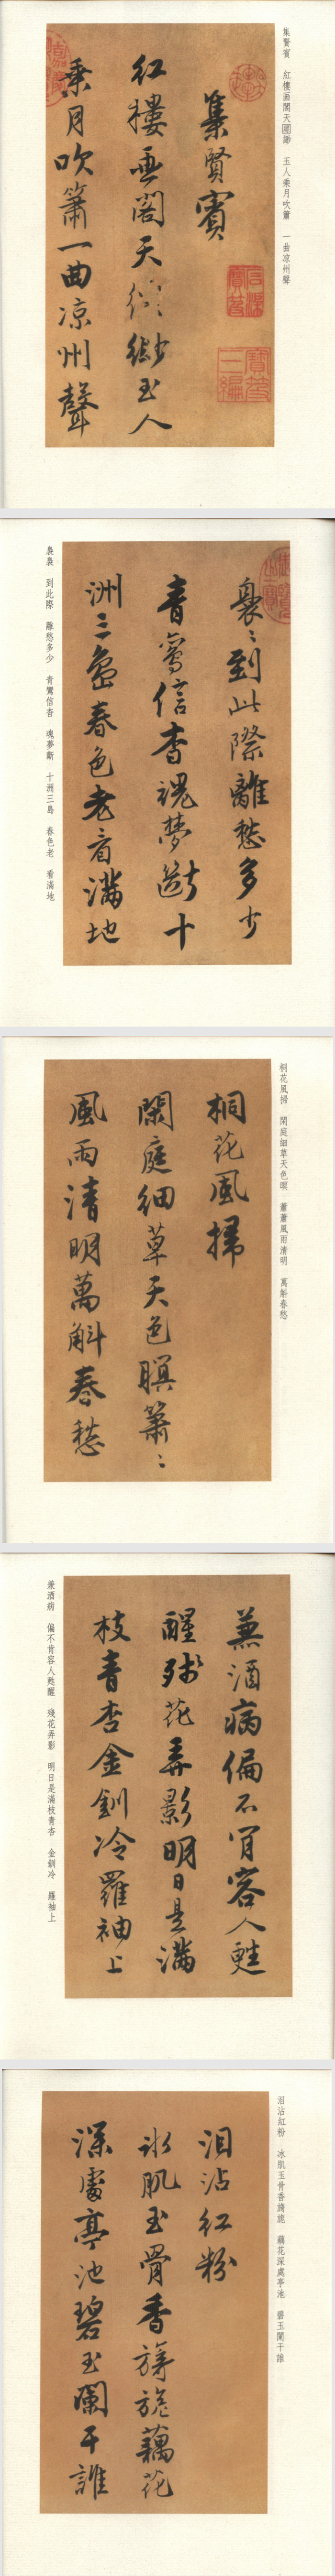 集賢賓　紅樓画閣天國緲　玉人乘月吹簫　一曲凉州聲
集賢賓
紅樓画閣天
緲玉人
乘月吹簫一曲凉州聲
裊裊　到此際　離愁多少　青鸞信杳　魂夢斷　十洲三島　春色老　看滿地
裊〻到此際離愁多少
青鸞信杳魂夢斷十
洲三島春色老看滿地
桐花風掃　閑庭細草天色暝　蕭蕭風雨清明　萬斛春愁
桐花風掃
閑庭細草天色暝蕭〻
風雨清明萬斛春愁
兼酒病　偏不肯容人甦醒　殘花弄影　明日是滿枝青杏　金釧冷　羅袖上
兼酒病偏不肯容人甦
醒殘花弄影明日是滿
枝青杏金釧冷羅袖上
泪沾紅粉　冰肌玉骨香旖旎　藕花深處亭池　碧玉闌干誰
泪沾紅粉
冰肌玉骨香旖旎藕花
深處亭池碧玉闌干誰